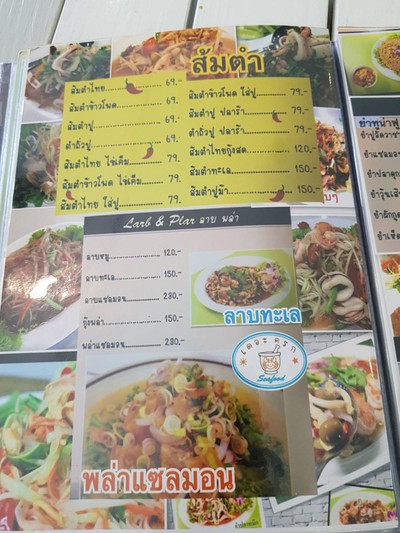 ส้มตำ
ส้มตำไทย 69.-
ส้มตำข้าวโพด 69.-
ส้มตำปู 69.-
ตำถั่วปู 69.-
ส้มตำไทย ไข่เค็ม 79.
ส้มตำข้าวโพด ไข่เค็ม 79.
ส้มตำไทย ใส่ปู 79.
ส้มตำข้าวโพด ใส่ปู 79.-
ส้มตำปู ปลาร้า 79.-
ตำถั่วปู ปลาร้า 79.-
ส้มตำไทยกุ้งสด 120.-
ส้มตำทะเล 150.-
ส้มตำปูม้า 150.-
Larb & Plar ลาบ พล่า
ลาบหมู 120.-
ลาบทะเล 150.-
ลาบแซลมอน 230.-
กุ้งพล่า 150.-
พล่าแซลมอน 230.-
ลาบทะเล
เดอะ ครก
Seafood
พล่าแซลมอน